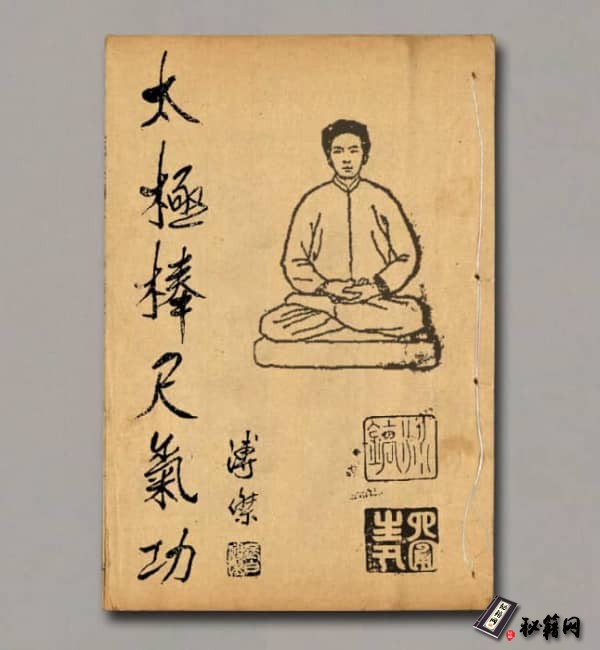 太極棒尺氣功
溥傑
秘籍网